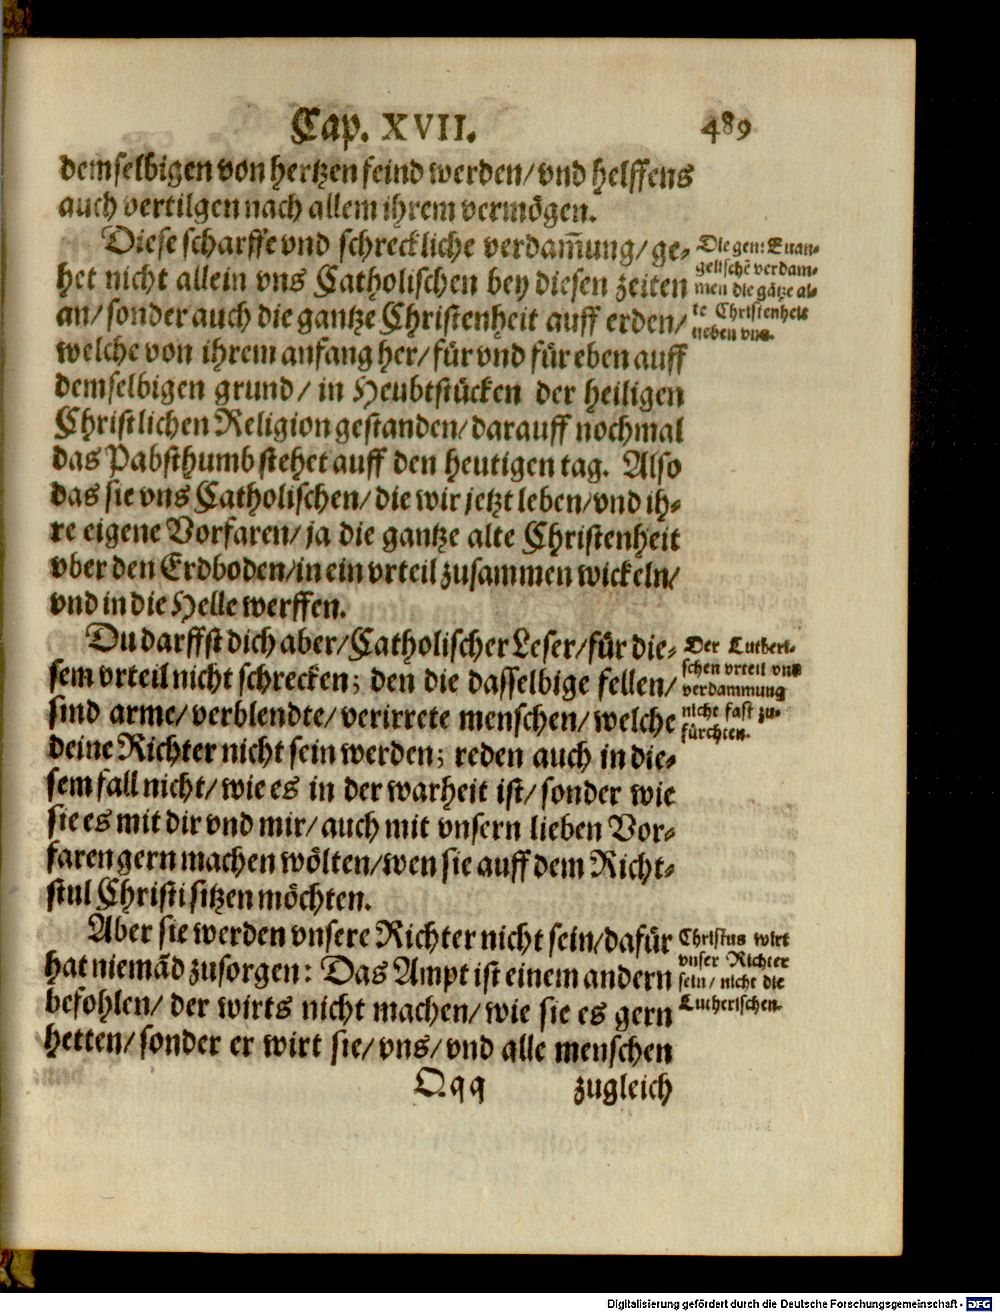 Cap. XVII. 489
demselbigen von hertzen feind werden/vnd helffens
auch vertilgen nach allem ihrem vermögen.
Diese scharffe vnd schreckliche verdam̃ung/ ge-
het nicht allein vns Catholischen bey diesen zeiten
an/ sonder auch die gantze Christenheit auff erden/
welche von ihrem anfang her/ für vnd für eben auff
demselbigen grund/ in Heubtstücken der heiligen
Christlichen Religion gestanden/ darauff nochmal
das Pabsthumb stehet auff den heutigen tag. Also
das sie vns Catholischen/ die wir jetzt leben/ vnd ih-
re eigene Vorfaren/ ja die gantze alte Christenheit
vber den Erdboden/ in ein vrteil zusammen wickeln/
vnd in die Helle werffen.
Die gen: Euan-
gelischē verdam-
men die gātze al-
te Christenheit
neben vns.
Du darffst dich aber/ Catholischer Leser/ für die-
sem vrteil nicht schrecken; den die dasselbige fellen/
sind arme/ verblendte/ verirrete menschen/ welche
deine Richter nicht sein werden; reden auch in die-
sem fall nicht/ wie es in der warheit ist/ sonder wie
sie es mit dir vnd mir/ auch mit vnsern lieben Vor-
faren gern machen wölten/ wen sie auff dem Richt-
stul Christi sitzen möchten.
Der Lutheri-
schen vrteil vnd
verdammung
nicht fast zu-
fürchten.
Aber sie werden vnsere Richter nicht sein/ dafür
hat niemād zusorgen: Das Ampt ist einem andern
befohlen/ der wirts nicht machen/ wie sie es gern
hetten/ sonder er wirt sie/ vns/ vnd alle menschen
Christus wirt
vnser Richter
sein/ nicht die
Lutherischen.
Qqq zugleich
Digitalisierung gefördert durch die Deutsche Forschungsgemeinschaft - DFG